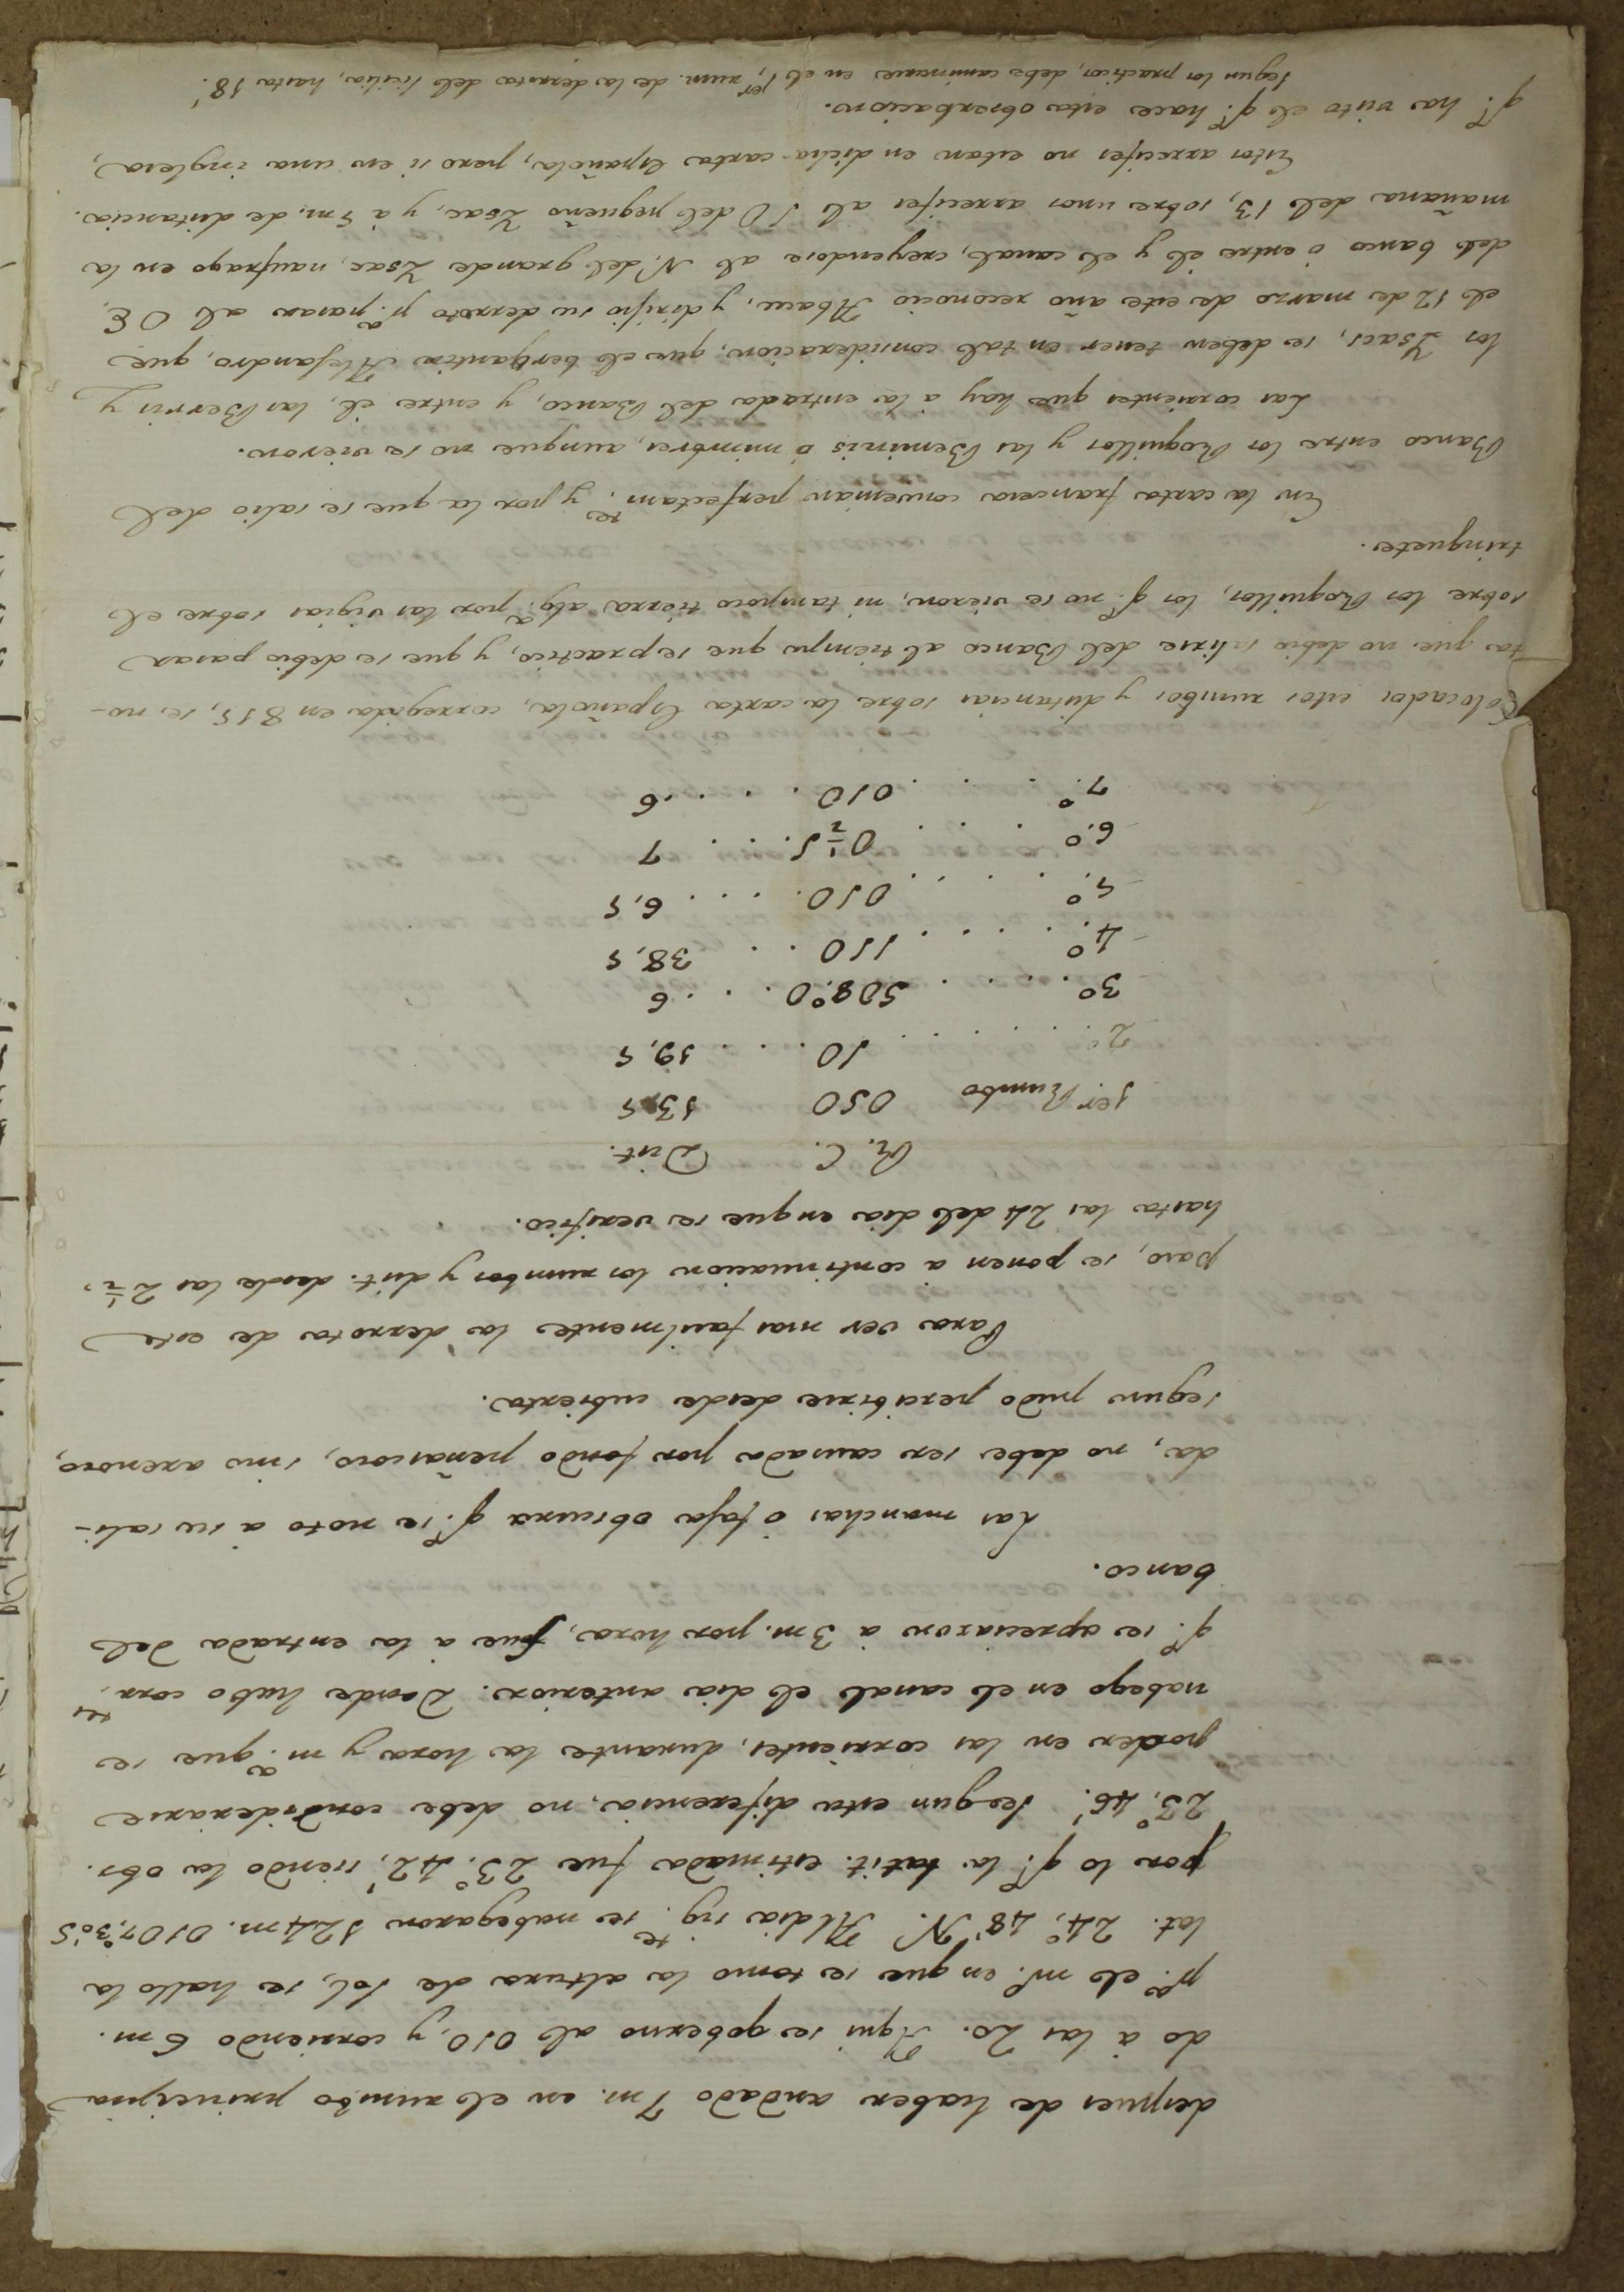 despues de haber andado 7 m. en el rumbo principia
do à las 20. Aqui se goberno al OSO, y corriendo 6 m.
pª el mº en que se tomo la altura de sol, se hallo la
lat. 24° 48' N. Al dia sigte se nabegaron 124 m. OSO 7°30' S
por lo qe la latit. estimada fue 23° 42', siendo la obs.
23° 46'. Segun esta diferencia, no debe considerarse
poder en las corrientes, durante la hora y mª que se
nabego en el canal el dia anterior. Donde hubo corrtes
qe se apreciaron à 3 m. por hora, fue à la entrada del
banco.
Las manchas ò faja obscura qe se noto à su sali-
da, no debe ser causada por fondo peñascoso, sino arenoso,
segun pudo percibirse desde cubierta.
Para ver mas facilmente la derrota de este
paso, se ponen à continuacion los rumbos y dist. desde las 2 1/2,
hasta las 24 del dia en que se verifico.
R. C. Dist.
1er Rumbo OSO 13,5
2° . . . . . SO . . . . 19,5
3° . . . . SO 8° O . . . . 6
4° . . . . SSO . . . 38,5
5° . . . . OSO . . . . 6,5
6° . . . O 1/2 S . . . . 7
7° . . . . OSO . . . . 6
Colocados estos rumbos y distancias sobre la carta Española, corregida en 815, se no-
ta que no debio salirse del Banco al tiempo que se practico, y que se debio pasar
sobre los Roquillos, los qe no se vieron, ni tampoco tierra algª por las vigias sobre el
trinquete.
En la carta francesa convenian perfectamte y por la que se salio del
Banco entre los Roquillos y las Beminis ò mimbres, aunque no se vieron.
Las corrientes que hay à la entrada del Banco, y entre èl, las Berris y
los Ysacs, se deben tener en tal consideracion, que el bergantin Alejandro, que
el 12 de marzo de este año reconocio Abaco, y dirifio su derroto pª pasar al OE
del banco ò entre èl y el canal, creyendose al N. del grande Ysac, naufrago en la
mañana del 13, sobre unos arrecifes al SO del pequeño Ysac, y à 5 m. de distancia.
Estos arrecifes no estan en dicha carta Española, pero si en una inglesa,
qe ha visto el qe hace esta obserbacion.
segun los practicos, debe caminarse en el 1er rum. de la derrota del Sicilia, hasta 18'.